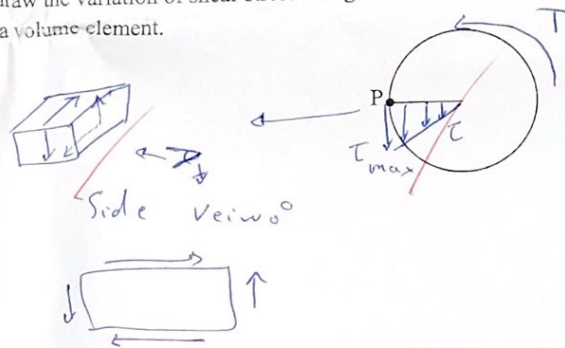 a volume element.
T
P
τ
τmax
Side veiw